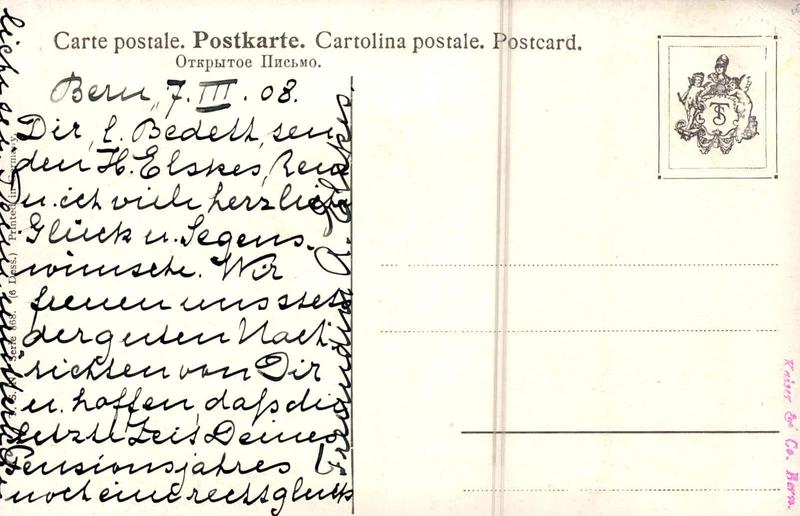 Carte postale. Postkarte. Cartolina postale. Postcard.
Открытое Письмо.
Bern, 7. III. 08.
Dir, l. Bedett, sen
den H. Elskes,
u. ich viele herzliche
Glück u. Segens-
wünsche. Wir
freuen uns stets
der guten Nach
richten von Dir
u. hoffen, daß die
letzte Zeit Deines
Pensionsjahres
noch eine recht glück
lich sei
A. Elskes
Serie 868. (6 Dess.) Printed in
Kaiser & Co. Bern.
TS